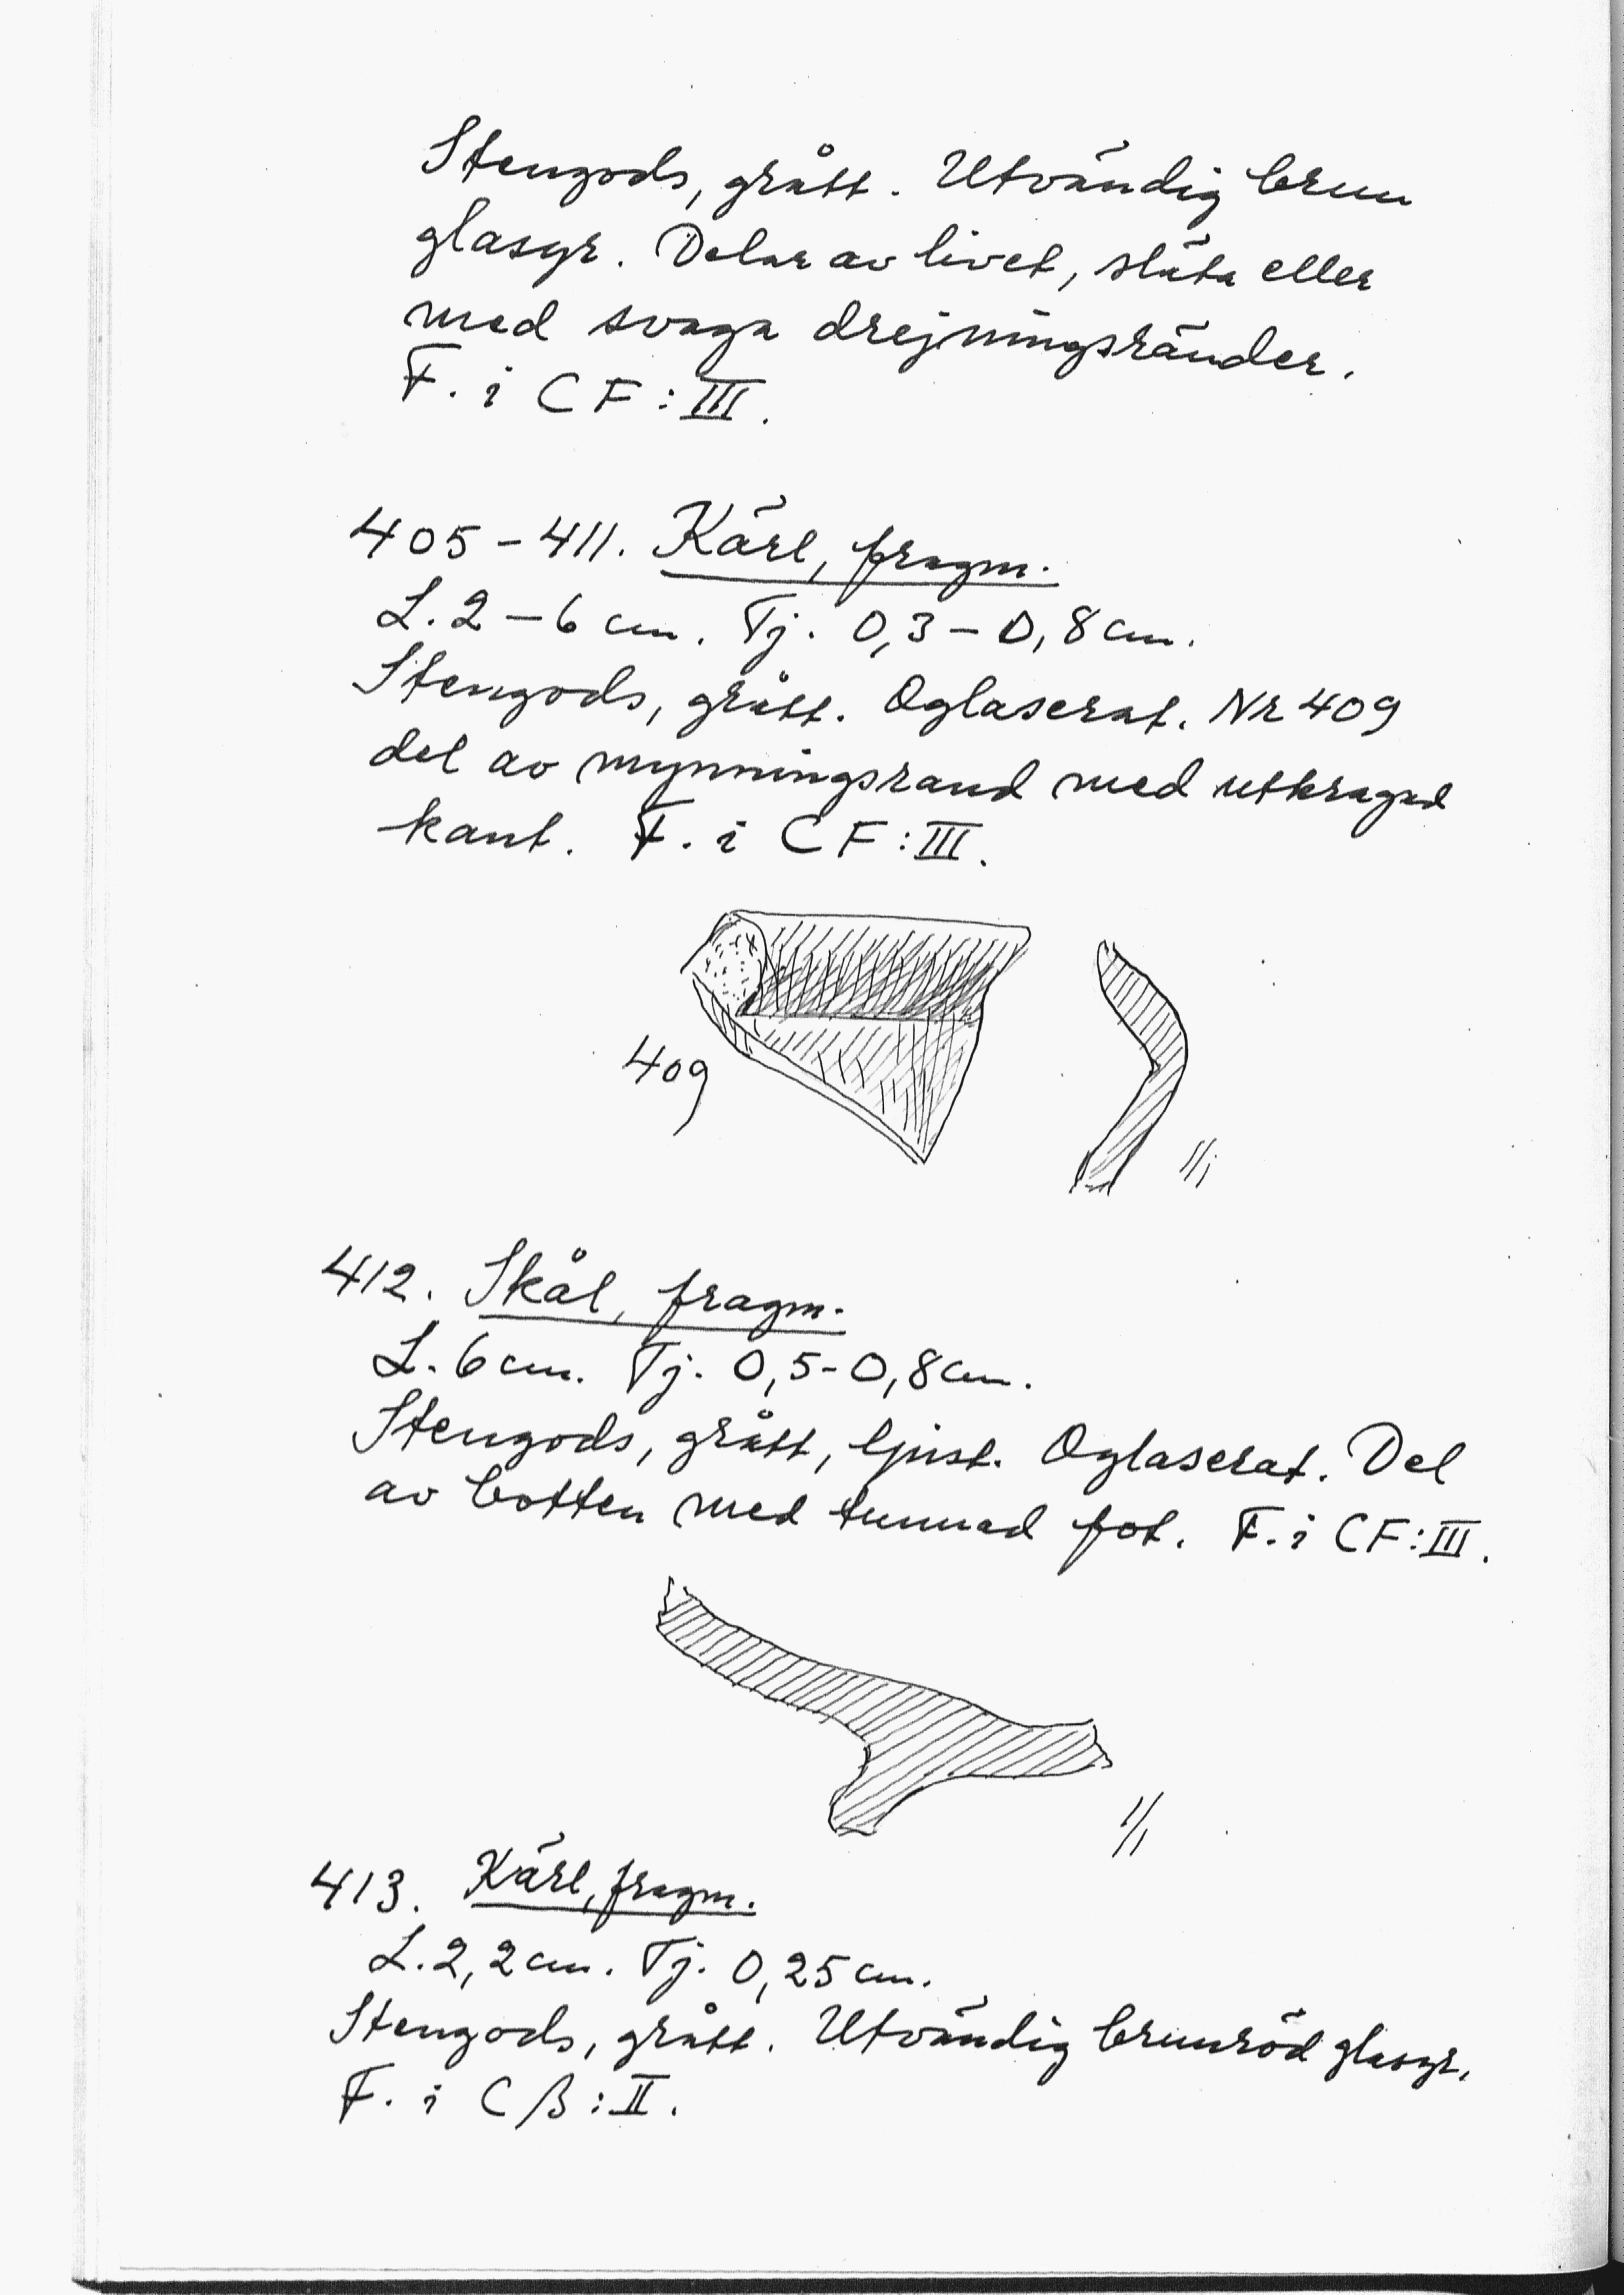 Stengods, grått. Utvändig brun
glasyr. Delar av livet, släta eller
med svaga drejningsränder.
F. i CF:III.
405-411. Kärl, fragm.
L. 2-6 cm. Tj. 0,3-0,8 cm.
Stengods, grått. Oglaserat. Nr 409
del av mynningsrand med utkragad
kant. F. i CF:III.
409
1/1
412. Skål, fragm.
L. 6 cm. Tj. 0,5-0,8 cm.
Stengods, grått, ljust. Oglaserat. Del
av botten med tunnad fot. F. i CF:III.
1/1
413. Kärl, fragm.
L. 2,2 cm. Tj. 0,25 cm.
Stengods, grått. Utvändig brunröd glasyr.
F. i CB:II.